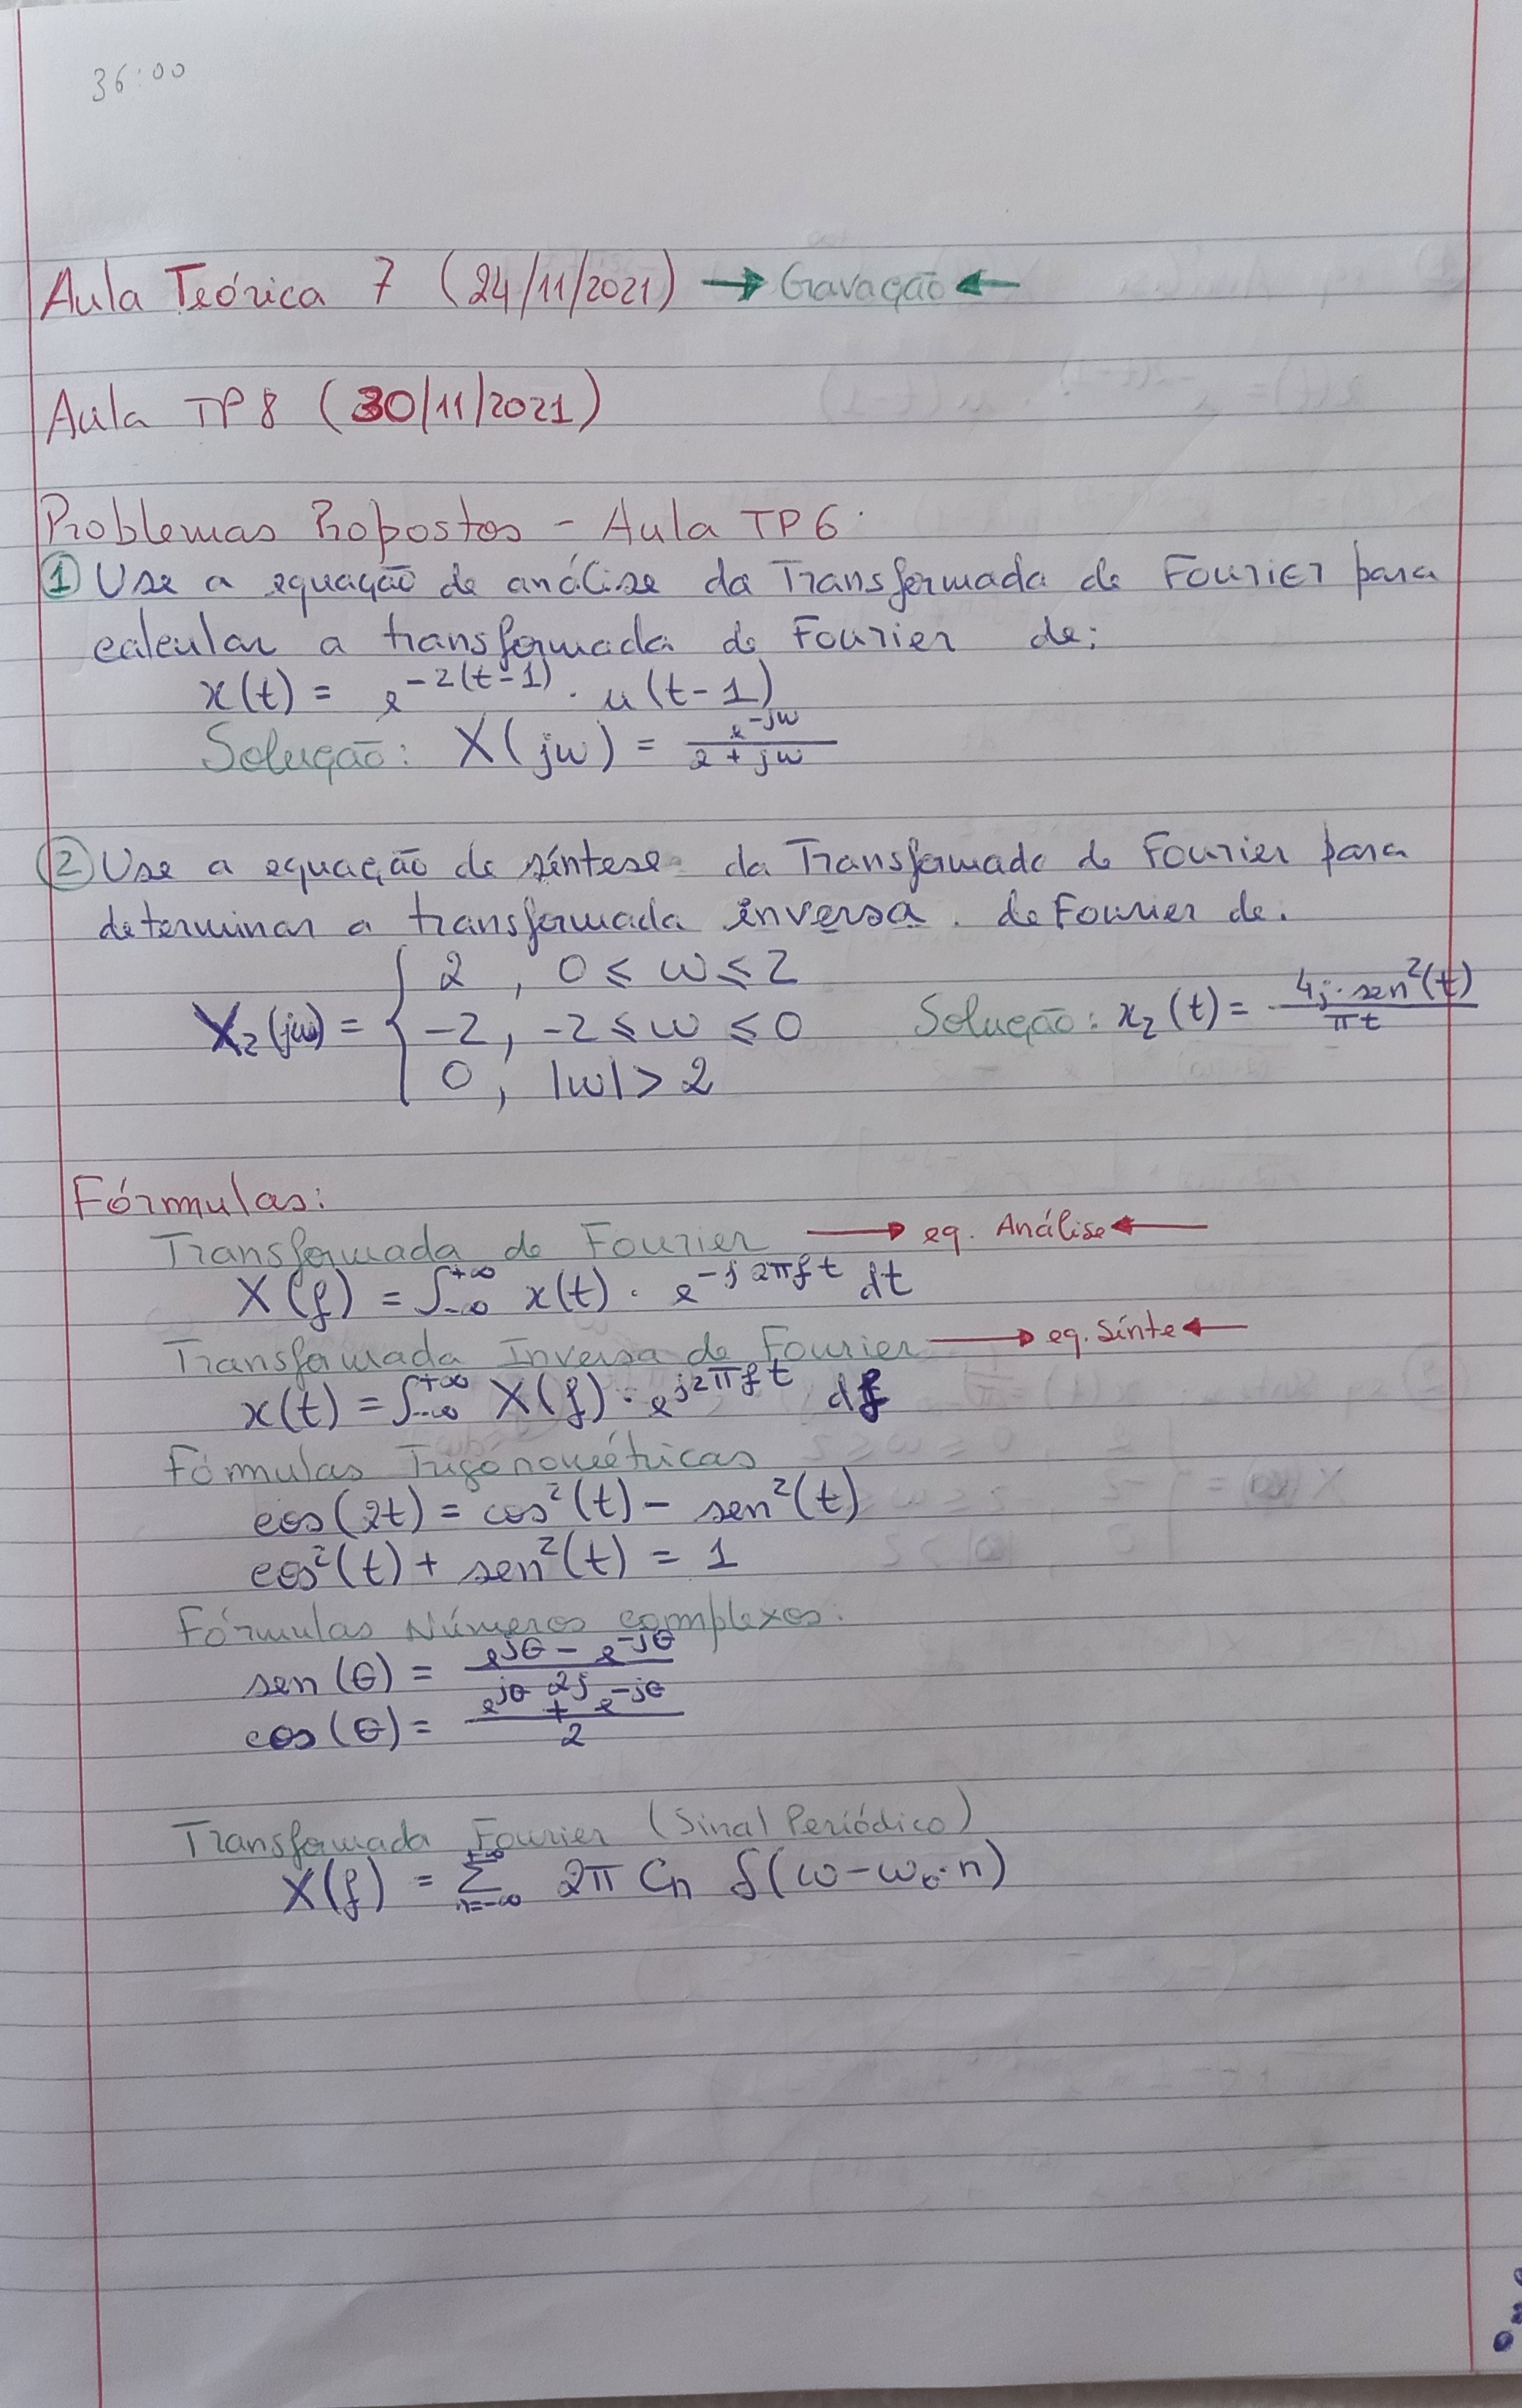 36:00
Aula Teórica 7 (24/11/2021) → Gravação ←
Aula TP8 (30/11/2021)
Problemas Propostos - Aula TP6:
① Use a equação de análise da Transformada de Fourier para
calcular a transformada de Fourier de:
x(t) = e^{-2(t-1)} · u(t-1)
Solução: X(jω) = e^{-jω} / (2 + jω)
② Use a equação de síntese da Transformada de Fourier para
determinar a transformada inversa de Fourier de:
X₂(jω) = { 2 , 0 ≤ ω ≤ 2
-2 , -2 ≤ ω ≤ 0 Solução: x₂(t) = - 4j · sen²(t) / πt
0 , |ω| > 2
Fórmulas:
Transformada de Fourier → eq. Análise ←
X(f) = ∫_{-∞}^{+∞} x(t) · e^{-j2πft} dt
Transformada Inversa de Fourier → eq. Sínte ←
x(t) = ∫_{-∞}^{+∞} X(f) · e^{j2πft} df
Fórmulas Trigonométricas
cos(2t) = cos²(t) - sen²(t)
cos²(t) + sen²(t) = 1
Fórmulas Números complexos:
sen(θ) = (e^{jθ} - e^{-jθ}) / 2j
cos(θ) = (e^{jθ} + e^{-jθ}) / 2
Transformada Fourier (Sinal Periódico)
X(f) = Σ_{n=-∞}^{+∞} 2π Cn δ(ω - ω₀·n)